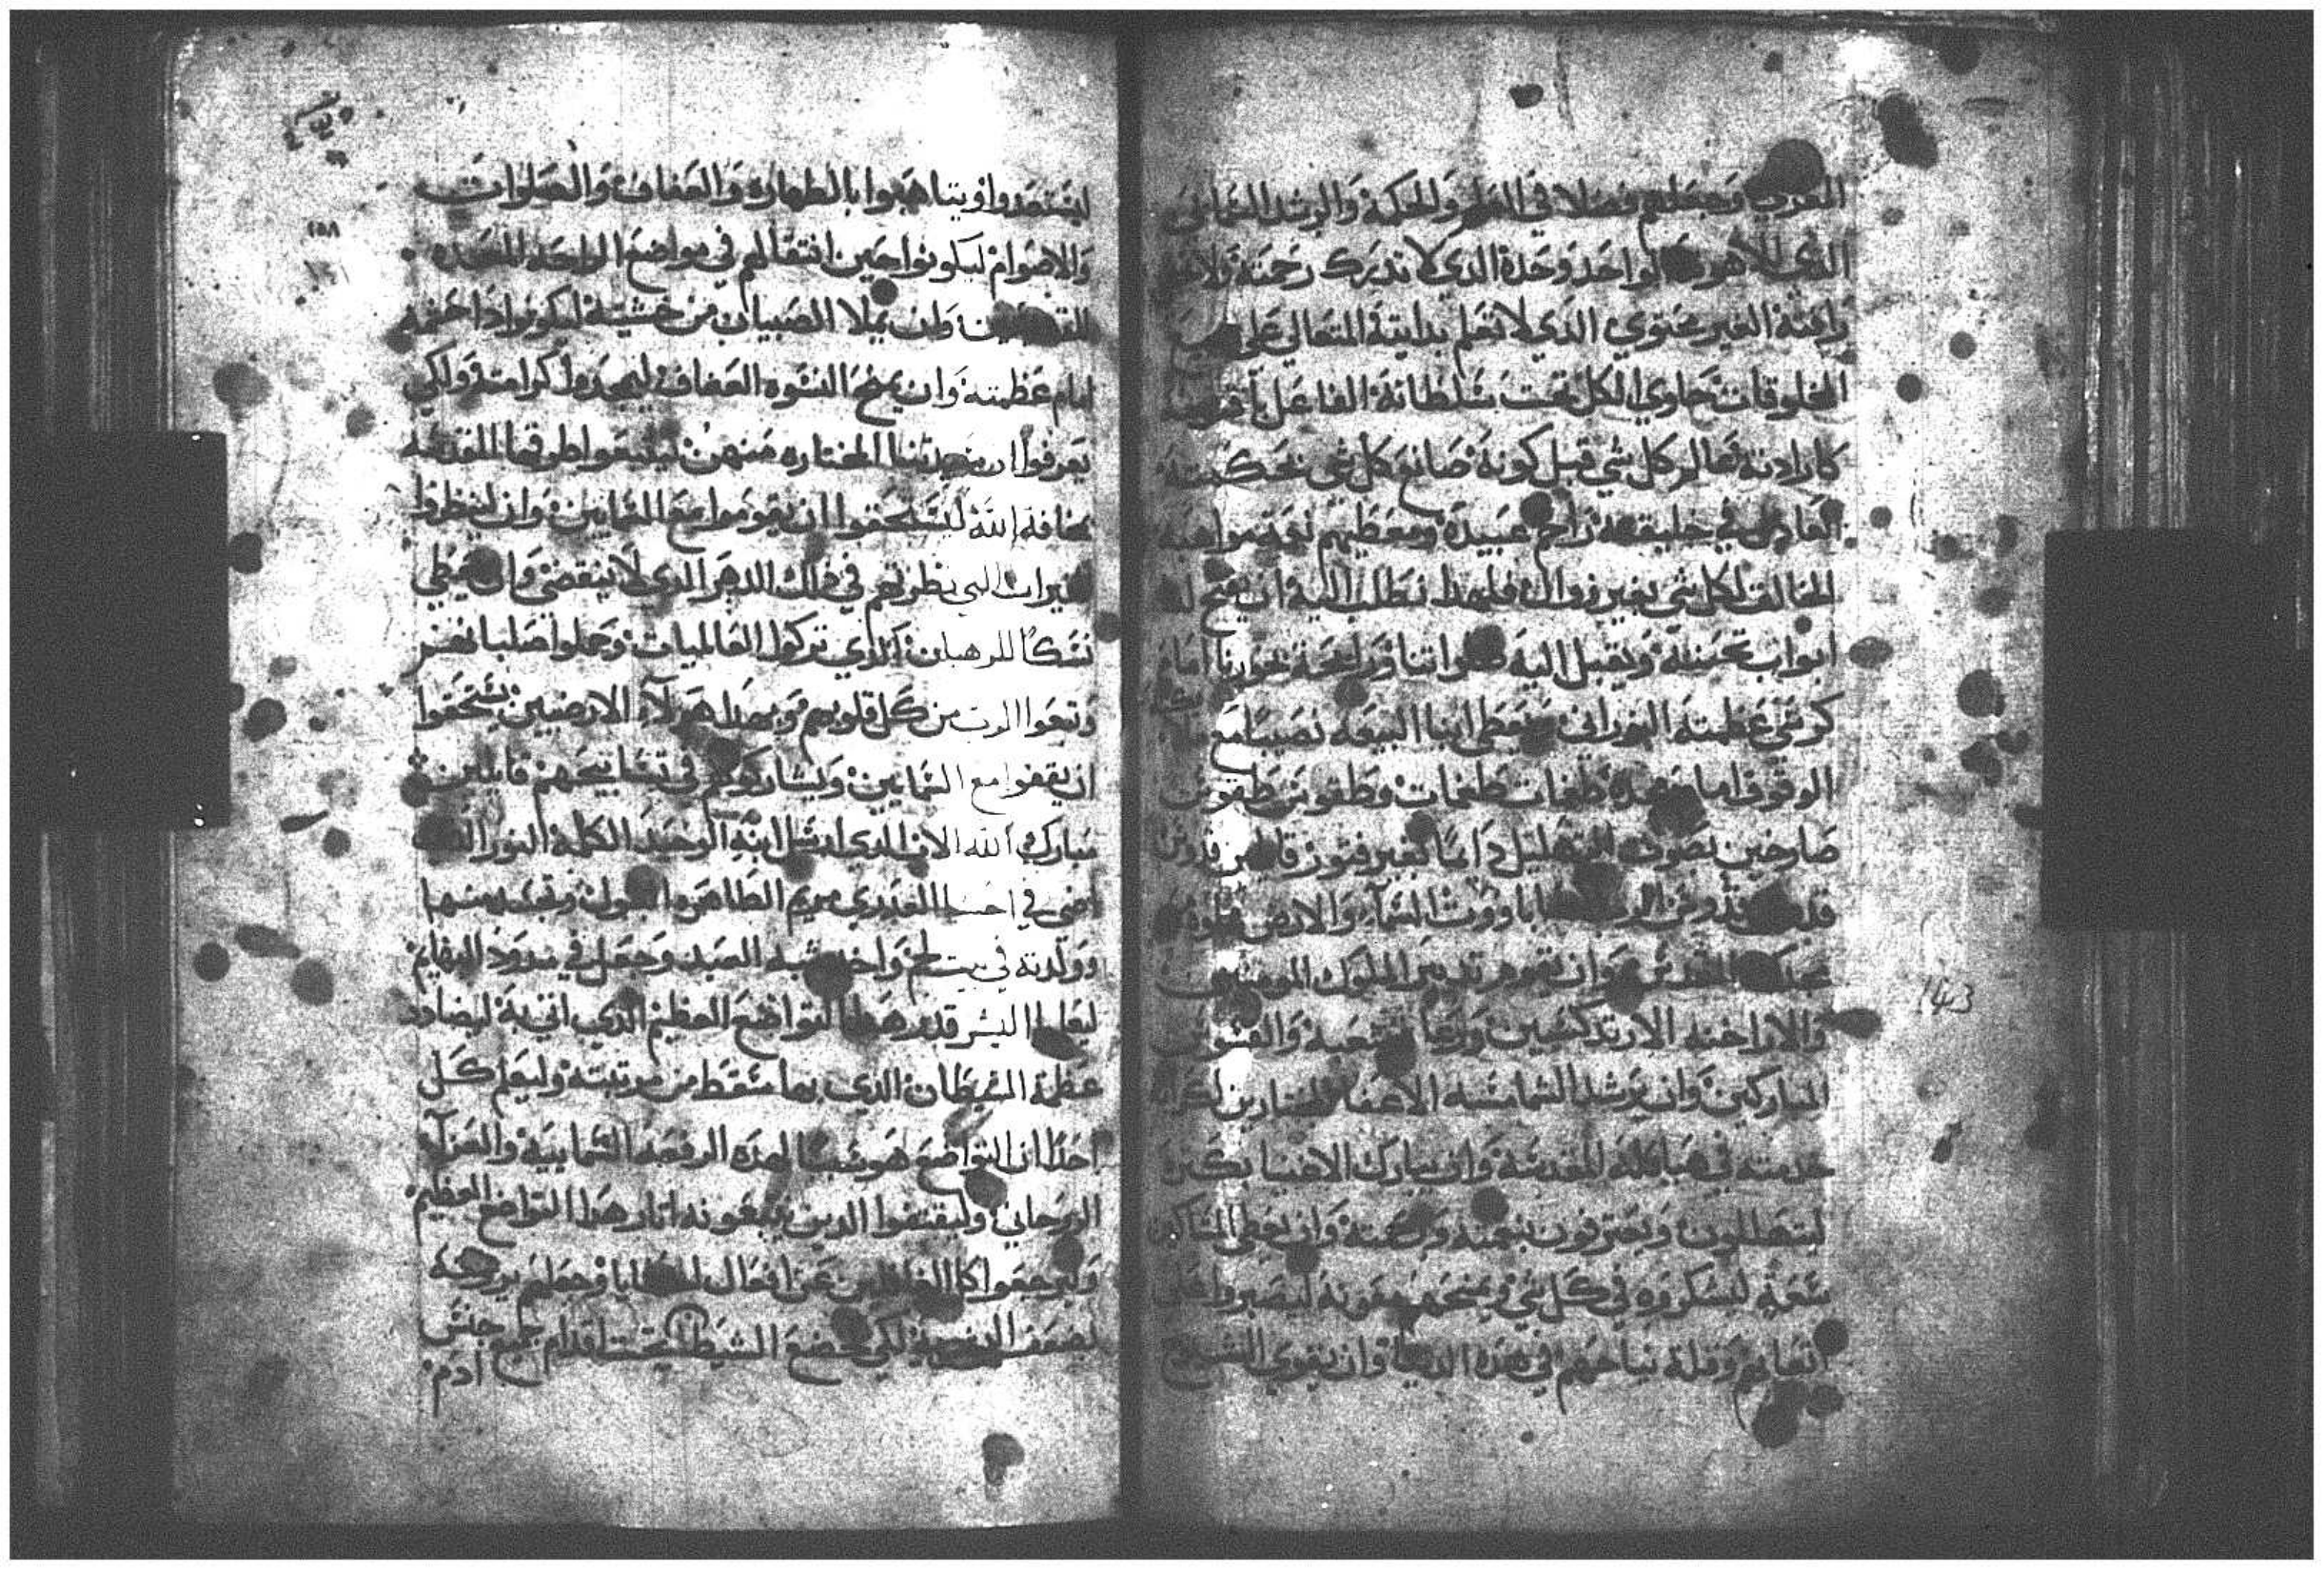 المعرفة وجعلهم فضلا في العلم والحكمة والرشد السماني
الذي للاهوته الواحد وحده الذي لا تدرك رحمته ولا
رافته الغير محتوي الذي لا تعلم بدايته المتعالي على
المخلوقات حاوي الكل تحت سلطانه الفاعل
كارادته عالم كل شي قبل كونه صانع كل شي بحكمته
العادل في خليقته راحم عبيده ومعطيهم نعمة مواهبه
الخالق لكل شي بغير زوال فلهذا نطلب اليه ان يفتح لنا
ابواب تحننه ويقبل اليه صلواتنا ورايحة بخورنا امام
كرسي عظمته النوراني ويعطي ابنا البيعه نصيبا مع
الوقوف امام مجده طغمات طغمات وطقوس طقوس
صارخين بصوت التهليل دايما بغير فتور قايلين قدوس
قدوس قدوس الرب الصاباووت السماء والارض مملوة
مجدك المقدس وان يقوم تدبير الملوك المومنين
والاراخنه الارتدكسيين ورعا الشعبه والقسوس
المباركين وان يرشد الشمامسه الاعفا المختارين لكرامة
خدمته في هياكله المقدسة وان يبارك الاغنيا بكثرة
لتهللون ويعترفون بنعمته ورحمته وان يعطي المساكين
سعة ليشكروه في كل شي ويمنحهم معونة ليصبروا على
اتعابهم وقلة نياحهم في هذه الدنيا وان يقوي الشيوخ
١٤٣
١٥٨
ليستعدوا ويتاهبوا بالطهاره والعفاف والصلوات
والاصوام ليكونوا حين انتقالهم في مواضع الراحه المعده
للقديسين وان يملا الصبيان من خشيته ليكونوا اذا خدمه
امام عظمته وان يمنح النسوه العفاف ليجدوا كرامته ولكي
يعرفوا ان سيدتنا المختاره منهن ليتبعوا طرقها المقدسه
مخافة الله ليستحقوا ان يقوموا مع السمايين وان لينظروا
الخيرات التي تظرفهم في ذلك الدهر الذي لا ينقضي وان يعطي
نسكا للرهبان الذي تركوا العالميات وحملوا صلبانهم
وتبعوا الرب من كل قلوبهم وبهذا هولاء الارضيين يستحقوا
ان يقفوا مع السمايين ويشاركوهم في تسابيحهم قايلين
مبارك الله الاب الذي ارسل ابنه الوحيد الكلمة النور الذي
اضى في احشا العذري مريم الطاهره البتول وتجسد منها
وولدته في بيت لحم واخذ شبه العبد وجعل في مدود البهايم
ليعلم البشر قدر هذا التواضع العظيم الذي اتى به ليضادد
عظمة الشيطان الذي بها سقط من مرتبته وليعلم كل
احدا ان التواضع هو سببا لهذه الرفعه السماييه والعزاء
الروحاني وليقتفوا الدين يتبعونه اثار هذا التواضع العظيم
وليرجعوا كل الخاطيين عن افعال الخطايا وجعلهم بروحه
لضعف البشرية لكي خضع الشيطان تحت اقدام جميع جنس
ادم